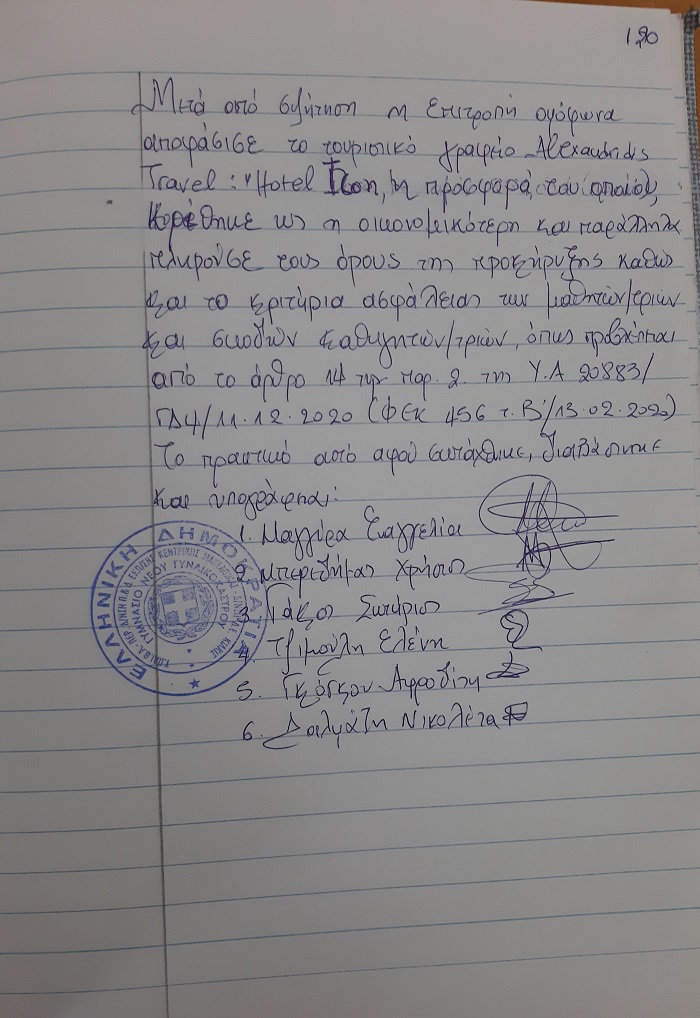 120
Μετά από συζήτηση η Επιτροπή ομόφωνα
αποφάσισε το τουριστικό γραφείο Alexandridis
Travel: "Hotel Ilion, η προσφορά του οποίου,
κρίθηκε ως η οικονομικότερη και παράλληλα
πληρούσε τους όρους της προκήρυξης καθώς
και το κριτήρια ασφάλειας των μαθητών/τριών
και συνοδών καθηγητών/τριών, όπως προβλέπεται
από το άρθρο 14 την παρ. 2. της Υ.Α 20883/
ΓΔ4/11.12.2020 (ΦΕΚ 456 τ. Β'/13.02.2020)
Το πρακτικό αυτό αφού συντάχθηκε, διαβάστηκε
και υπογράφεται:
1. Μαγγίρα Ευαγγελία
2. Μπερεδήμας Χρήστος
3. Γάκος Σωτήριος
4. Τζιμούλη Ελένη
5. Γκόγκου Αφροδίτη
6. Δαλμάτζη Νικολέτα
ΕΛΛΗΝΙΚΗ ΔΗΜΟΚΡΑΤΙΑ
ΓΥΜΝΑΣΙΟ ΝΕΟΥ ΓΥΝΑΙΚΟΚΑΣΤΡΟΥ